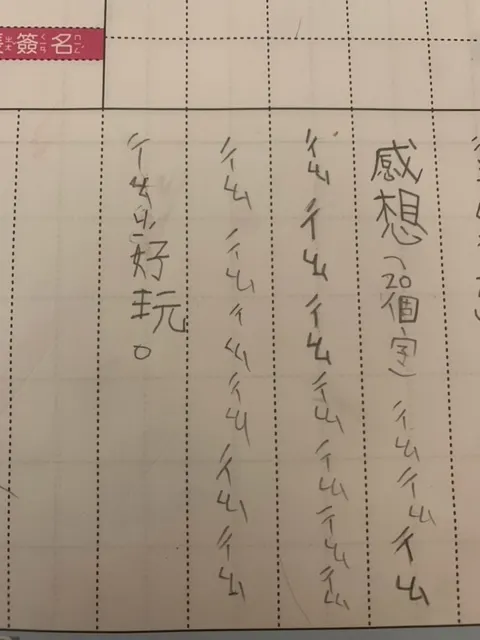 簽名
感想(20個字)ㄔㄠㄔㄠㄔㄠ
ㄔㄠㄔㄠㄔㄠㄔㄠㄔㄠㄔㄠㄔㄠ
ㄔㄠㄔㄠㄔㄠㄔㄠㄔㄠㄔㄠ
ㄔㄠ好玩。